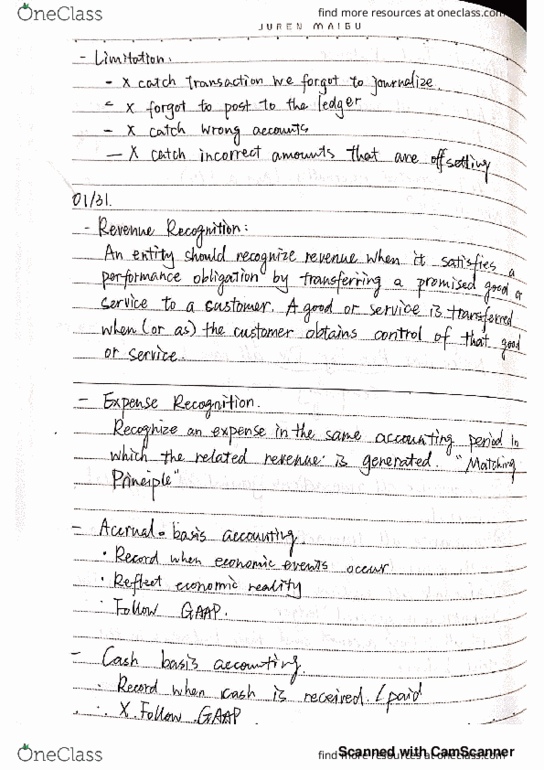 OneClass
find more resources at oneclass.com
JUREN MAIGU
- Limitation:
- X catch transaction we forgot to journalize.
- X forgot to post to the ledger
- X catch wrong accounts
- X catch incorrect amounts that are offsetting
01/31.
- Revenue Recognition:
An entity should recognize revenue when it satisfies a
performance obligation by transferring a promised good or
service to a customer. A good or service is transferred
when (or as) the customer obtains control of that good
or service.
- Expense Recognition.
Recognize an expense in the same accounting period in
which the related revenue is generated. "Matching
Principle"
- Accrual-basis accounting.
· Record when economic events occur
· Reflect economic reality
· Follow GAAP.
- Cash basis accounting.
· Record when cash is received / paid
· X Follow GAAP
OneClass
find more resources at oneclass.com
Scanned with CamScanner